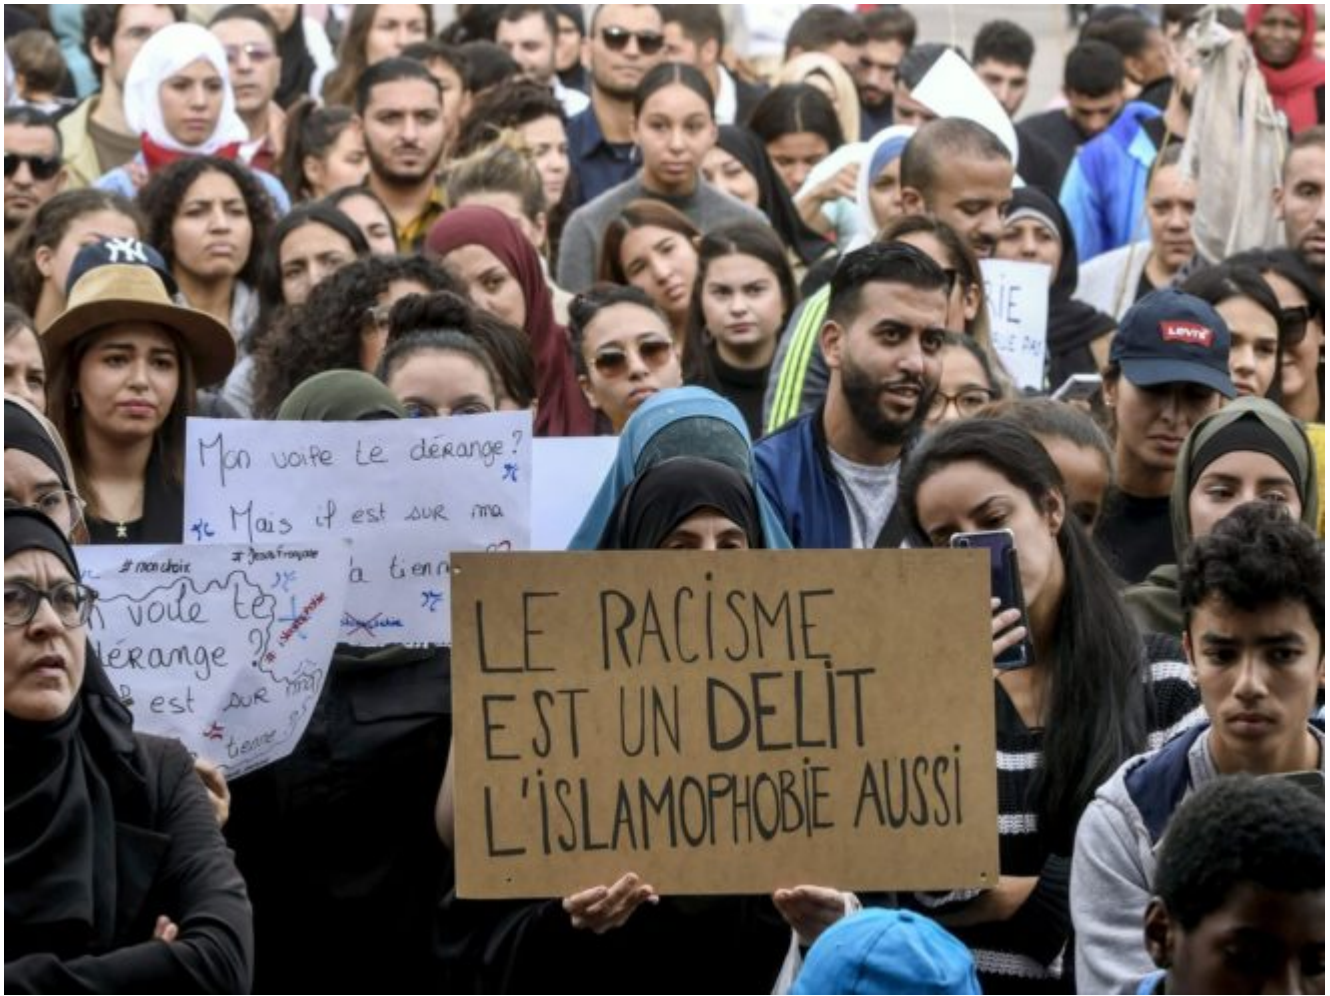 NY
LEVI'S
RIE
Mon voile te dérange ?
Mais il est sur ma
a tienn
# monchoix
# JesuisFrançaise
n voile te
dérange ?
est sur ma
tienne ?
LE RACISME
EST UN DELIT
L'ISLAMOPHOBIE AUSSI